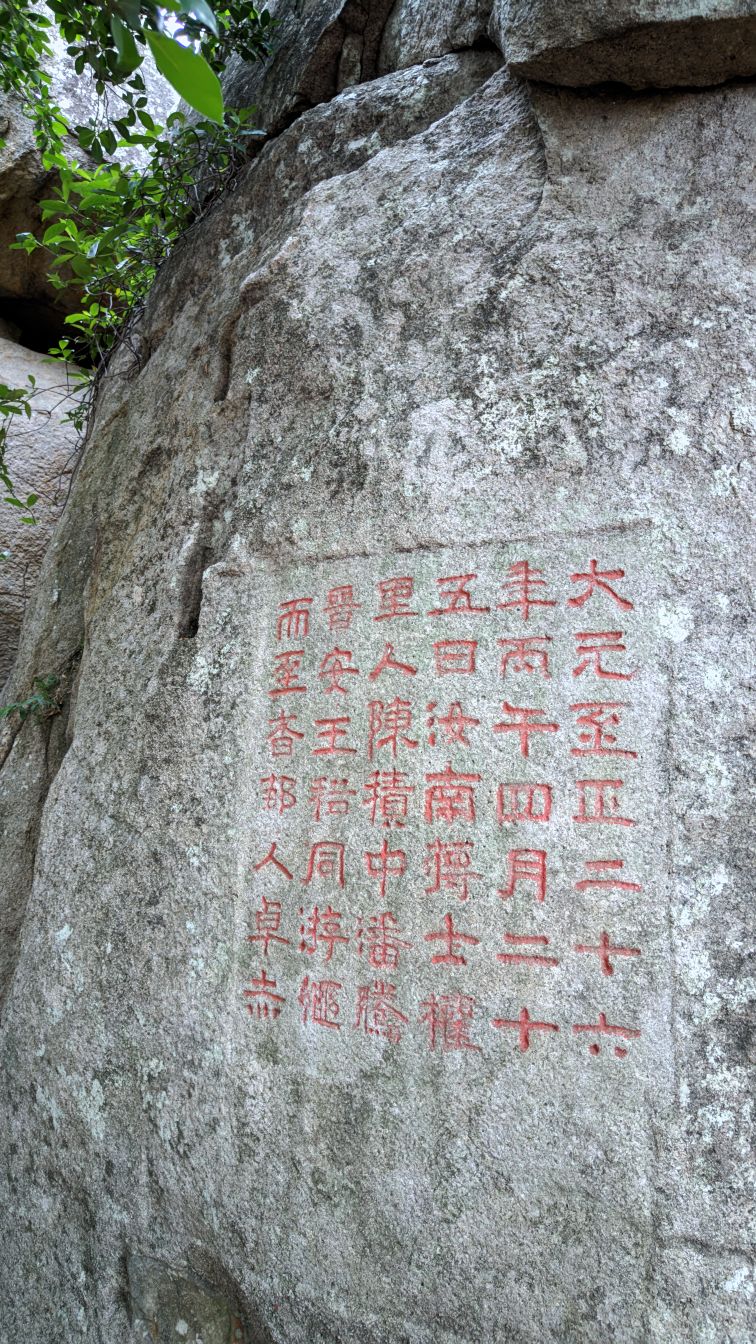 大元至正二十六
年丙午四月二十
五日汝南士
里人陳積中潘騰
晉安王同游繼
而至者郡人卓